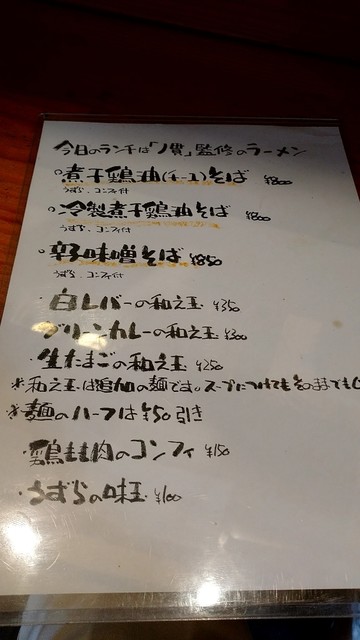 今日のランチは「ノ貫」監修のラーメン
○煮干鶏油(チーユ)そば ¥800
うずら、コンフィ付
○冷製煮干鶏油そば ¥800
うずら、コンフィ付
○辛味噌そば ¥850
うずら、コンフィ付
・白レバーの和え玉 ¥350
グリーンカレーの和え玉 ¥300
・生たまごの和え玉 ¥250
※和え玉は追加の麺です。スープにつけてもそのままでも
※麺のハーフは¥50引き
・鶏もも肉のコンフィ ¥150
・うずらの味玉 ¥100